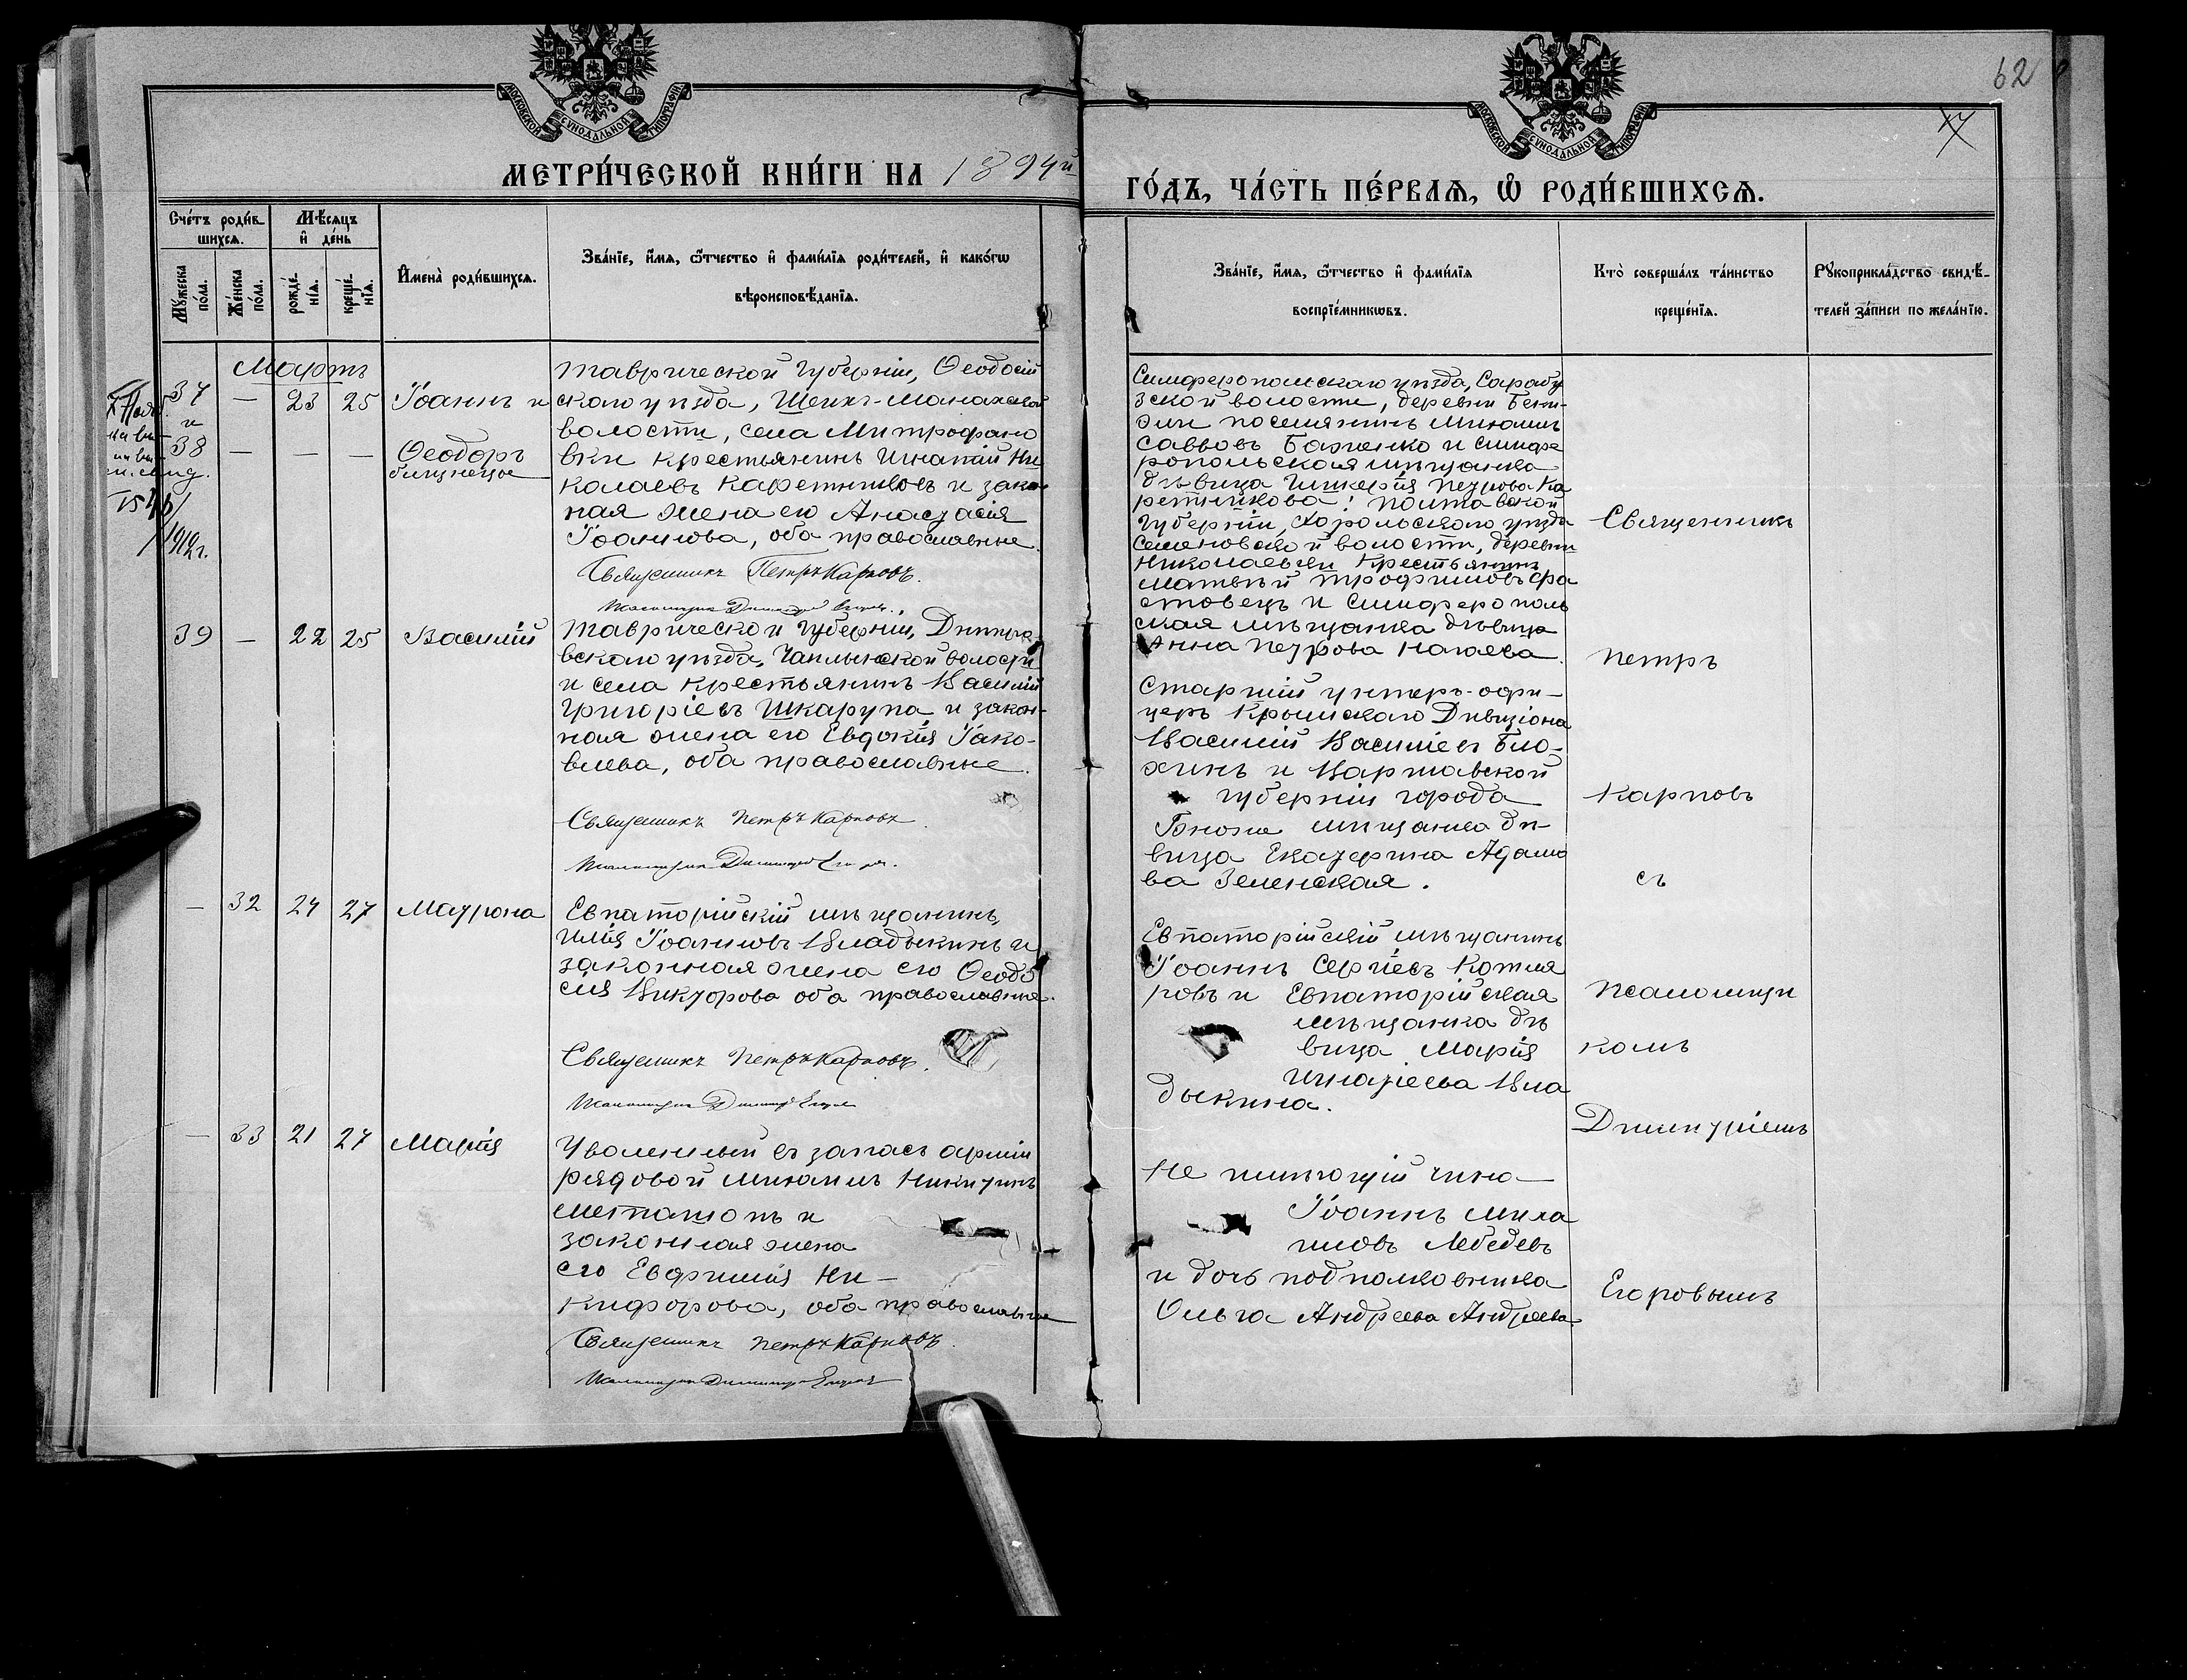 62
МОСКОВСКОЙ СѴНОДАЛЬНОЙ ТИПОГРАФІИ
МОСКОВСКОЙ СѴНОДАЛЬНОЙ ТИПОГРАФІИ
МЕТРИ́ЧЕСКОЙ КНИ́ГИ НА 1894й
ГО́ДЪ, ЧА́СТЬ ПЕ́РВАЯ, Ѡ҆ РОДИ́ВШИХСЯ.
Сче́тъ роди́в
шихся.
Мꙋ́жеска
по́ла.
Же́нска
по́ла.
Мѣ́сяцъ
и҆ де́нь
рожде́
нїя.
креще́
нїя.
И҆мена̀ роди́вшихся.
Зва́нїе, и҆́мя, ѻ҆́тчество и҆ фами́лїя роди́телей, и҆ како́гѡ
вѣроисповѣ́данїя.
Зва́нїе, и҆́мя, ѻ҆́тчество и҆ фами́лїя
воспрїе́мникѡвъ.
Кто̀ соверша́лъ та́инство
креще́нїя.
Рꙋкоприкла́дство свидѣ́-
телей за́писи по жела́нїю.
Мартъ
37
и
38
— 23 25
— — —
Іоаннъ и
Ѳеодоръ
близнецы
1912г.
Таврической губерніи, Ѳеодосій
скаго уѣзда, Шейхъ-Монахской
волости, села Митрофано
вки крестьянинъ Игнатій Ни
колаевъ Каретниковъ и закон
ная жена его Анастасія
Іоаннова, оба православные.
Священникъ Петръ Карповъ.
Псаломщикъ Димитрій Егоровъ.
Симферопольскаго уѣзда, Сарабу
зской волости, деревни
поселянинъ Михаилъ
Саввовъ Баженко и симфе
ропольская мѣщанка
дѣвица Гликерія Петрова Ка
ретникова: Полтавской
губерніи, Хорольскаго уѣзда
Семеновской волости, деревни
Николаевки крестьянинъ
Матвѣй Трофимовъ Фа
стовецъ и симферополь
ская мѣщанка дѣвица
Анна Петрова Нагаева.
39 — 22 25 Василій
Таврической губерніи, Днѣпро
вскаго уѣзда, Чаплынской волости
и села крестьянинъ Василій
Григоріевъ Шкарупа и закон-
ная жена его Евдокія Іако-
влева, оба православные.
Священникъ Петръ Карповъ.
Псаломщикъ Димитрій Егоровъ.
Старшій унтеръ-офи-
церъ Крымскаго Дивизіона
Василій Василіевъ Бло-
хинъ и Варшавской
губерніи города
мѣщанка дѣ
вица Екатерина Адамо
ва Зеленская.
— 32 24 27 Матрона
Евпаторійскій мѣщанинъ
Илія Іоанновъ Владыкинъ и
законная жена его Ѳеодо
сія Викторова оба православные.
Священникъ Петръ Карповъ.
Псаломщикъ Димитрій Егоровъ
Евпаторійскій мѣщанинъ
Іоаннъ Сергіевъ Котля
ровъ и Евпаторійская
мѣщанка дѣ
вица Марія
Игнатіева Вла
дыкина.
— 33 21 27 Марія
Уволенный въ запасъ арміи
рядовой Михаилъ Никитинъ
и
законная жена
его Евфимія Ни-
кифорова, оба православные
Священникъ Петръ Карповъ.
Псаломщикъ Димитрій Егоровъ
Не имѣющій чина
Іоаннъ Миха
иловъ Лебедевъ
и дочь подполковника
Ольга Андреева Андреева.
Священникъ
Петръ
Карповъ
съ
псаломщи
комъ
Димитріемъ
Егоровымъ